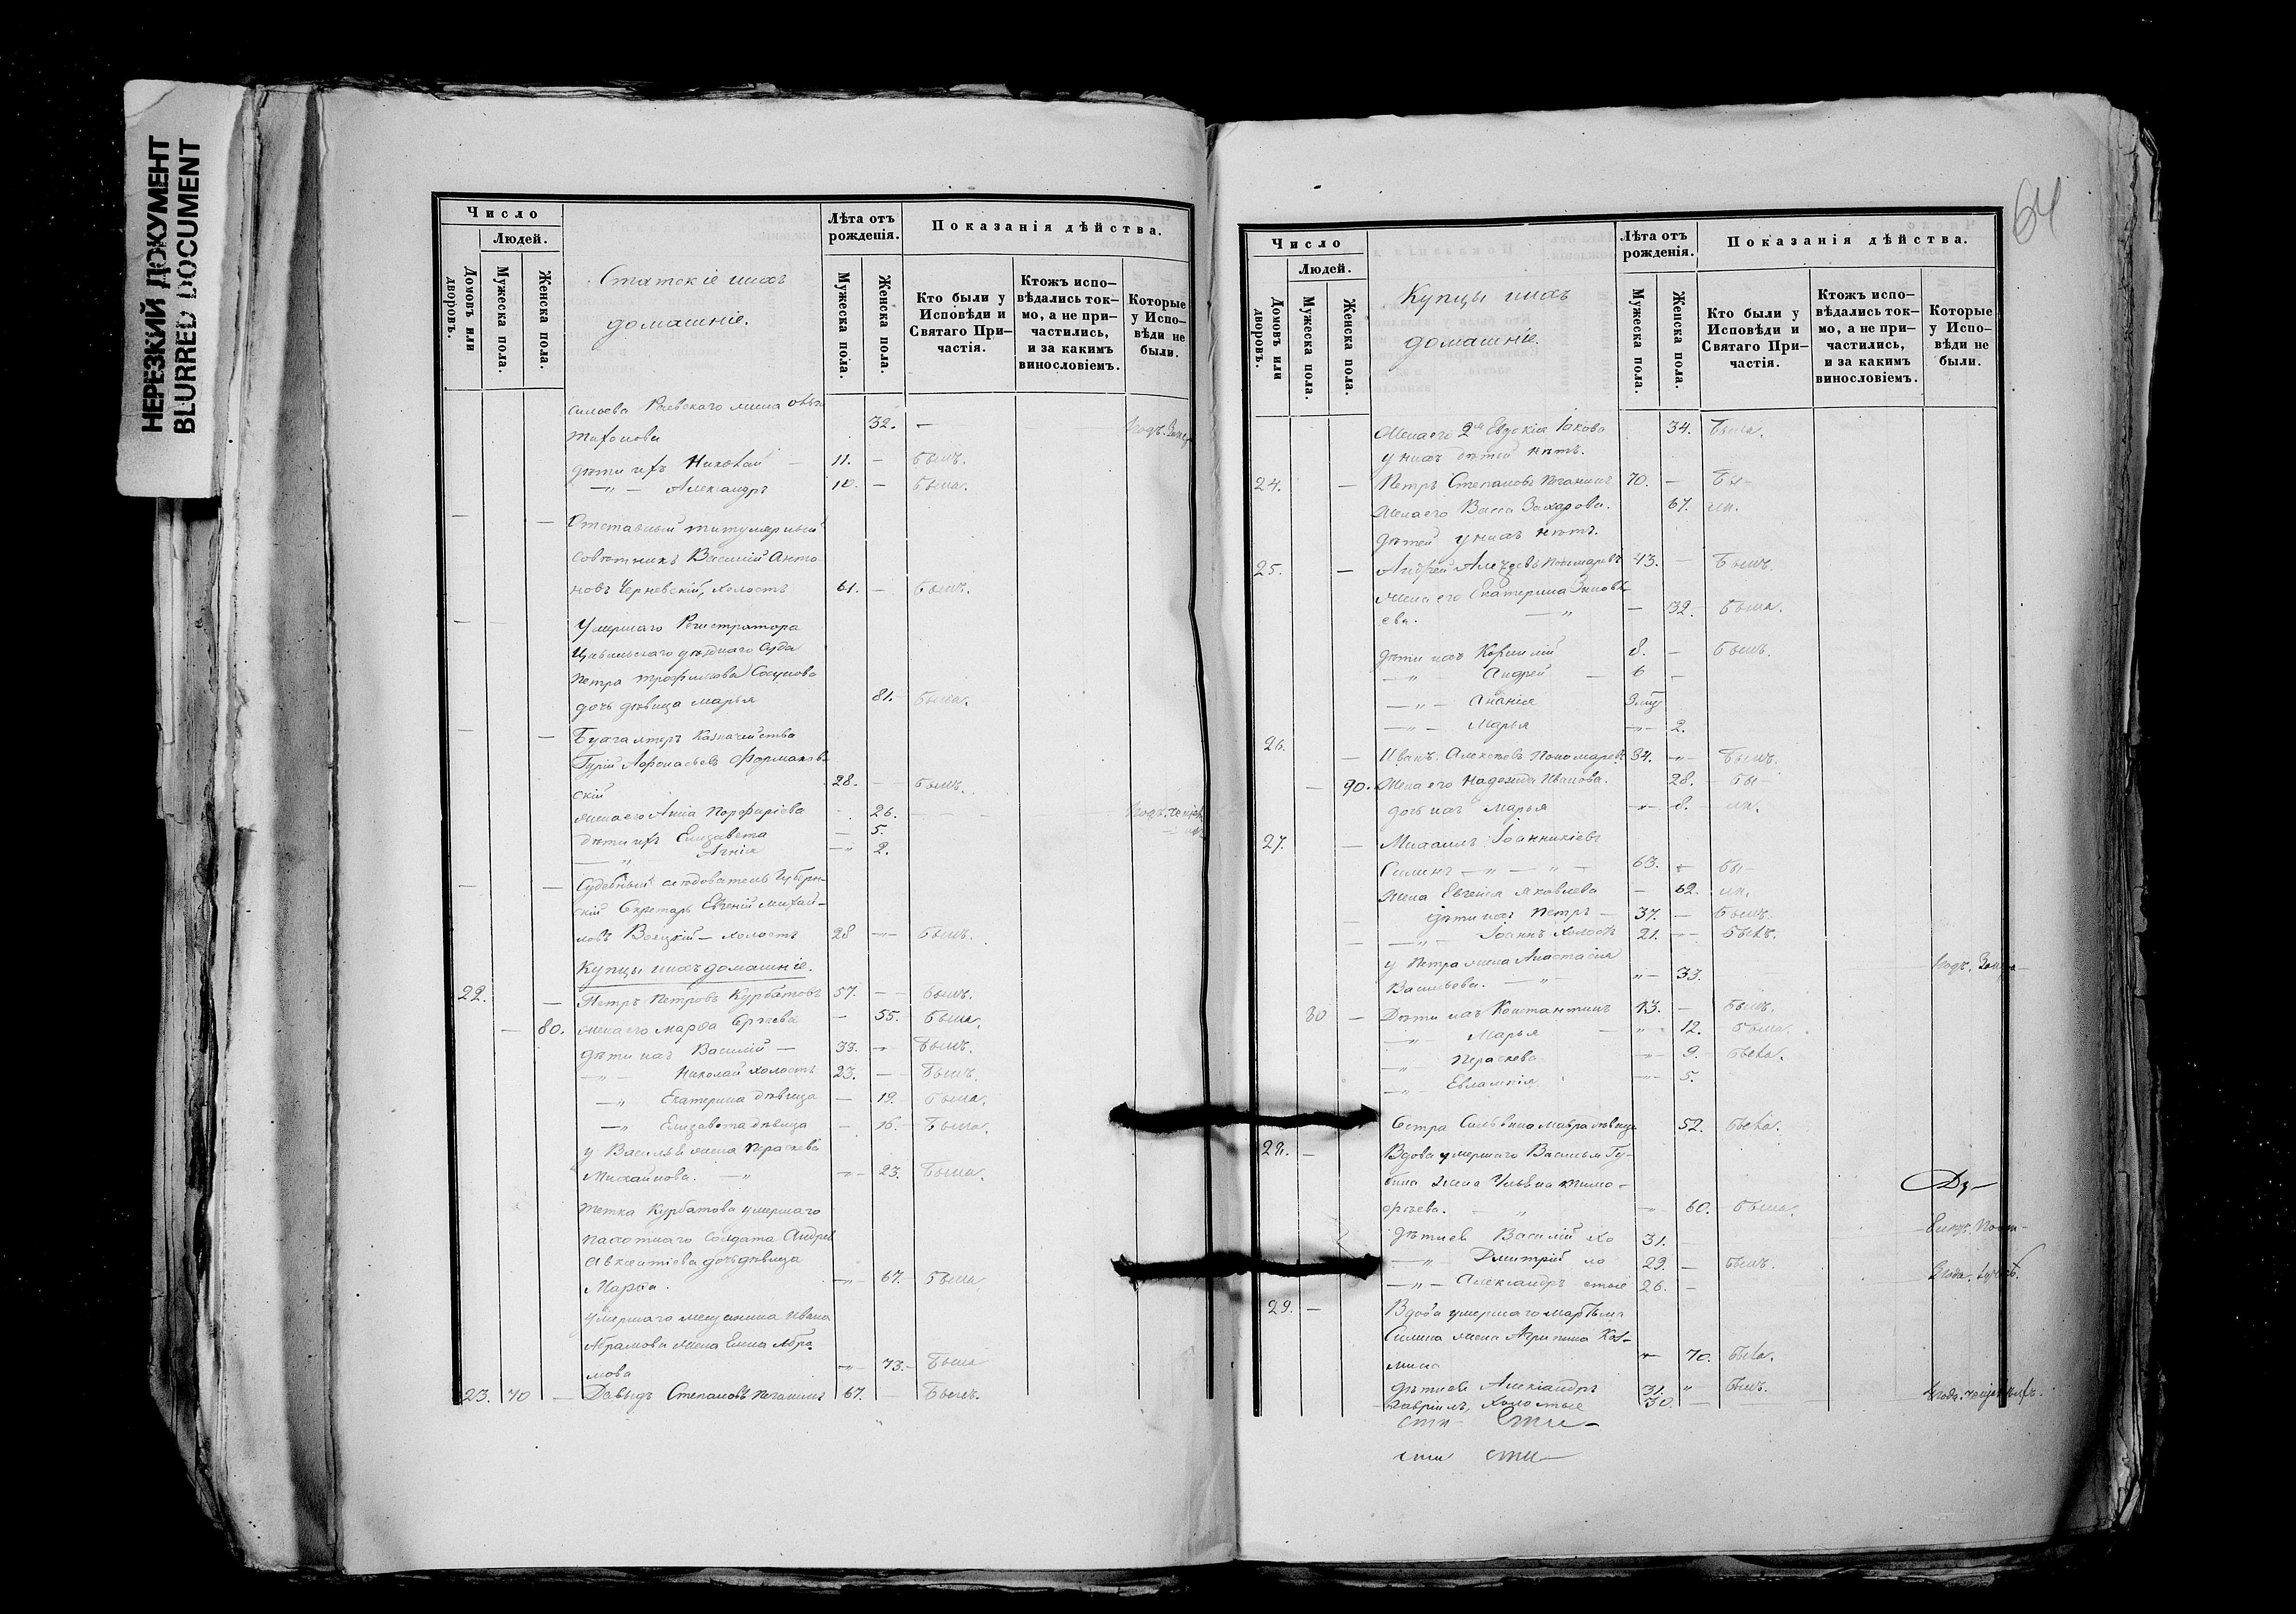 НЕРЕЗКИЙ ДОКУМЕНТ
BLURRED DOCUMENT
Число
Людей.
Домовъ или дворовъ.
Мужеска пола.
Женска пола.
Статскіе ихъ
домашніе.
Лѣта отъ рожденія.
Мужеска пола.
Женска пола.
Показанія дѣйства.
Кто были у Исповѣди и Святаго При—частія.
Ктожъ испо—вѣдались ток—мо, а не при—частились, и за какимъ винословіемъ.
Которые у Испо—вѣди не были.
Раевскаго жена
32. —
дѣти ихъ Николай — 11. — былъ.
—„— Александръ 10. —
— — Отставный титулярный
совѣтникъ Василій Анто
новъ Черневскій, холостъ 61. — былъ.
— Умершаго Регистратора
Цивильскаго уѣзднаго Суда
Петра Трофимова
дочь дѣвица Марья 81. — была.
— — Бухгалтеръ Казначейства
Гурій Афонасьевъ Формаков
скій 28. — былъ.
жена его Анна Порфиріева 26.
дѣти ихъ Елизавета — 5.
—„— Агнія —„ 2.
— — Судебный слѣдователь Губерн—
скій Секретарь Евгеній Михай—
ловъ — холостъ 28 — былъ.
Купцы ихъ домашніе.
22. — Петръ Петровъ Курбатовъ 57. — былъ.
— 80. жена его Марфа — 55. была.
дѣти ихъ Василій — 33. — былъ.
—„— Николай холостъ 23. — былъ.
—„ Екатерина дѣвица — 19. была.
—„ Елизавета дѣвица — 16. была.
у Василья жена Параскева
Михайлова. —„ — 23. была.
тетка Курбатова умершаго
солдата Андрея
дочь дѣвица
Марфа. — 67. была
умершаго мещанина Ивана
Абрамова жена Елена Абра
мова — 73. была
23. 70 — Давыдъ Степановъ 67. — былъ.
64
Число
Людей.
Домовъ или дворовъ.
Мужеска пола.
Женска пола.
Купцы ихъ
домашніе.
Лѣта отъ рожденія.
Мужеска пола.
Женска пола.
Показанія дѣйства.
Кто были у Исповѣди и Святаго При—частія.
Ктожъ испо—вѣдались ток—мо, а не при—частились, и за какимъ винословіемъ.
Которые у Испо—вѣди не были.
Жена его 2я Іаково 34. была.
у нихъ дѣтей нѣтъ.
24. — Петръ Степановъ 70. — бы—
Жена его Васса Захарова. 67. ли.
дѣтей у нихъ нѣтъ.
25. — Андрей Алекѣевъ Пономаревъ 43. — былъ.
Жена его Екатерина Зиновь
ева. —„ — 32. была.
дѣти ихъ Корнилій 8. — былъ.
—„— Андрей — 6 —
—„— Ананія
—„— Марья —„— 2.
26. — Иванъ Алексѣевъ Пономаревъ 34. —„— былъ.
— 90. Жена его Надежда Иванова. 28. бы—
дочь ихъ Марья —„— 8. ли.
27. — Михаилъ Іоанникіевъ
Силинъ —„—„— 63. — бы—
Жена Евгенія Яковлева — 62. ли.
дѣти ихъ Петръ — 37. — былъ.
—„— Іоаннъ холостъ 21. — былъ.
у Петра жена Анастасія
Васильева. —„ —„— 33.
80 — Дѣти ихъ Константинъ 13. — былъ.
—„ Марья —„— 12. была.
—„ Параскева —„— 9. была.
—„— Евлампія —„— 5.
Сестра Силина Мавра дѣвица 52. была.
28. — Вдова умершаго Василья Гу—
бина жена Тимо—
фѣева. „ — 60. была.
дѣти ея Василій хо 31.
—„— Дмитрій ло 29. — былъ.
—„— Александръ стые 26. —
29. — Вдова умершаго
Силина жена Агрипина Коз—
мина — 70. была.
дѣти ея Александръ 31. „ былъ.
Гавріилъ, холостые 30. —